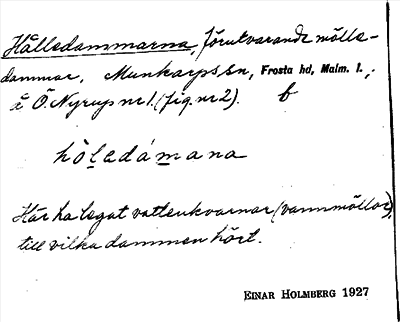 Hålledammarna, förutvarande mölle-
dammar, Munkarps sn, Frosta hd, Malm. l.,
å Ö. Nyrup nr 1. (fig. nr 2). b
hòlẹdám̱ana
Här ha legat vattenkvarnar (vannmöllor),
till vilka dammen hört.
EINAR HOLMBERG 1927